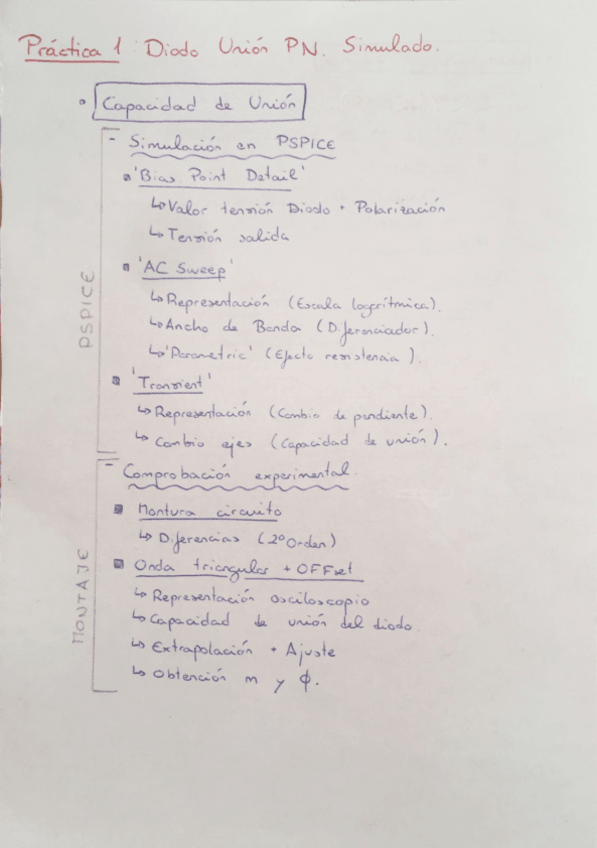 Práctica 1: Diodo Unión PN. Simulado.
• Capacidad de Unión
- Simulación en PSPICE
'Bias Point Detail'
↳ Valor tensión Diodo + Polarización
↳ Tensión salida
'AC Sweep'
↳ Representación (Escala logarítmica).
↳ Ancho de Banda (Diferenciador).
↳ 'Parametric' (Efecto resistencia).
'Transient'
↳ Representación (Cambio de pendiente).
↳ Cambio ejes (Capacidad de unión).
PSPICE
- Comprobación experimental.
Montura circuito
↳ Diferencias (2º Orden)
Onda triangular + OFFset
↳ Representación osciloscopio
↳ Capacidad de unión del diodo.
↳ Extrapolación + Ajuste
↳ Obtención m y ϕ.
MONTAJE